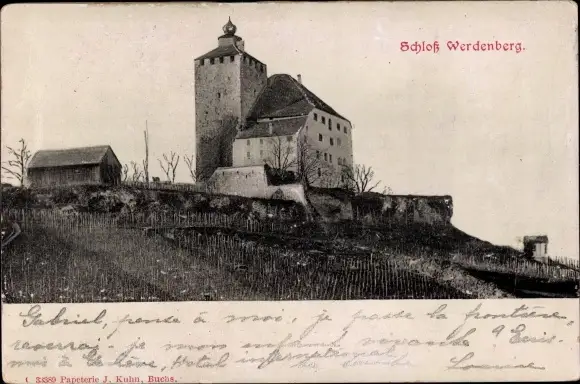 Schloß Werdenberg.
Gabriel, pense à moi, je passe la frontière,
reverrai-je mon enfant 9 Ecris.
moi à Genève, Hotel international
Louise
34389 Papeterie J. Kuhn, Buchs.